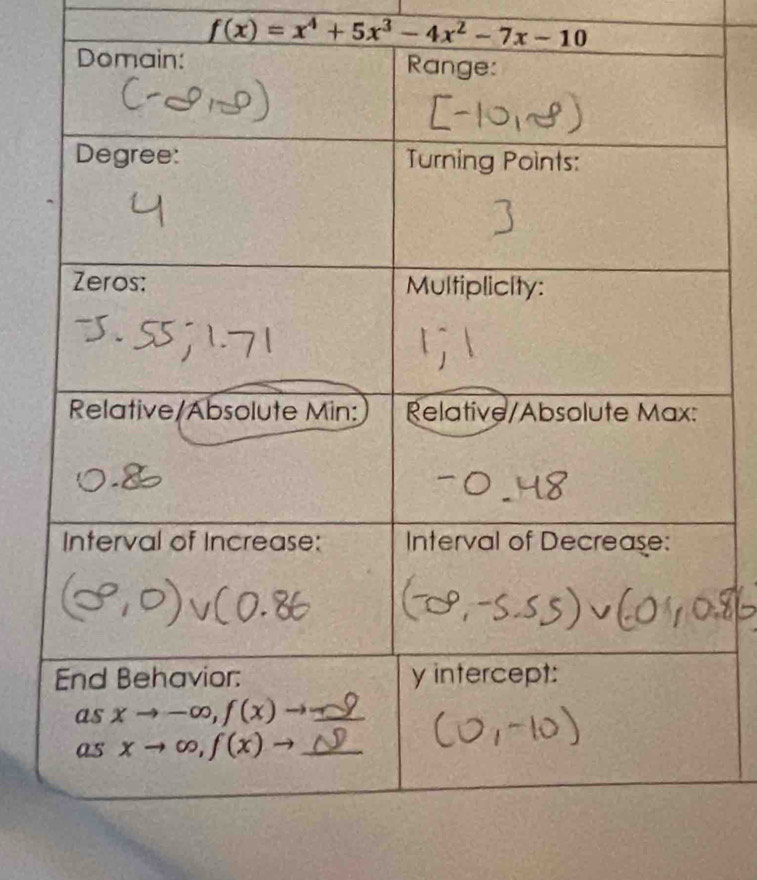 f(x) = x⁴ + 5x³ − 4x² − 7x − 10
Domain:
(-∞,∞)
Range:
[-10,∞)
Degree:
4
Turning Points:
3
Zeros:
-5.55; 1.71
Multiplicity:
1; 1
Relative/Absolute Min:
0.86
Relative/Absolute Max:
-0.48
Interval of Increase:
(∞,0)∪(0.86
Interval of Decrease:
(-∞,-5.55)∪(-0
End Behavior:
as x → −∞, f(x) → -∞
as x → ∞, f(x) → ∞
y intercept:
(0,-10)